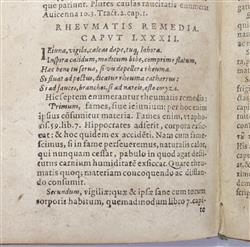 que pariunt. Plures causas raucitatis enumerat
Avicenna 10.3. Tract. 2. cap. 1.
RHEUMATIS REMEDIA.
CAPUT LXXXII.
Ieiuna, vigila, caleas dape, tuq; labora.
Inspira calidum, modicum bibe, comprime flatum,
Hæc bene tu serva, si vis depellere rheuma.
Si fluat ad pectus, dicatur rheuma catharrus:
Si ad fauces, branchus, si ad nareis, esto coryza.
Hic septem enumerantur rheumatis remedia:
Primum, fames, sive ieiunium: per hoc enim
ipsus cōsumitur materia. Fames enim, ut aphoris.
59. lib. 7. Hippocrates asserit, corpora exiccat:
& hoc quidem ex accidēti. Nam cum sanescimus,
si in fame perseveremus, naturalis calor,
qui nunquam cessat, pabulo in quod agat destitutus
carnium humiditatē exsiccat. Quare rheumatis
quoq; materiam coucoquendo ac diffiando
consumit.
Secundum, vigiliæ: quæ & ipsæ sane cum totum
corporis habitum, quemadmodum libro 7. capite